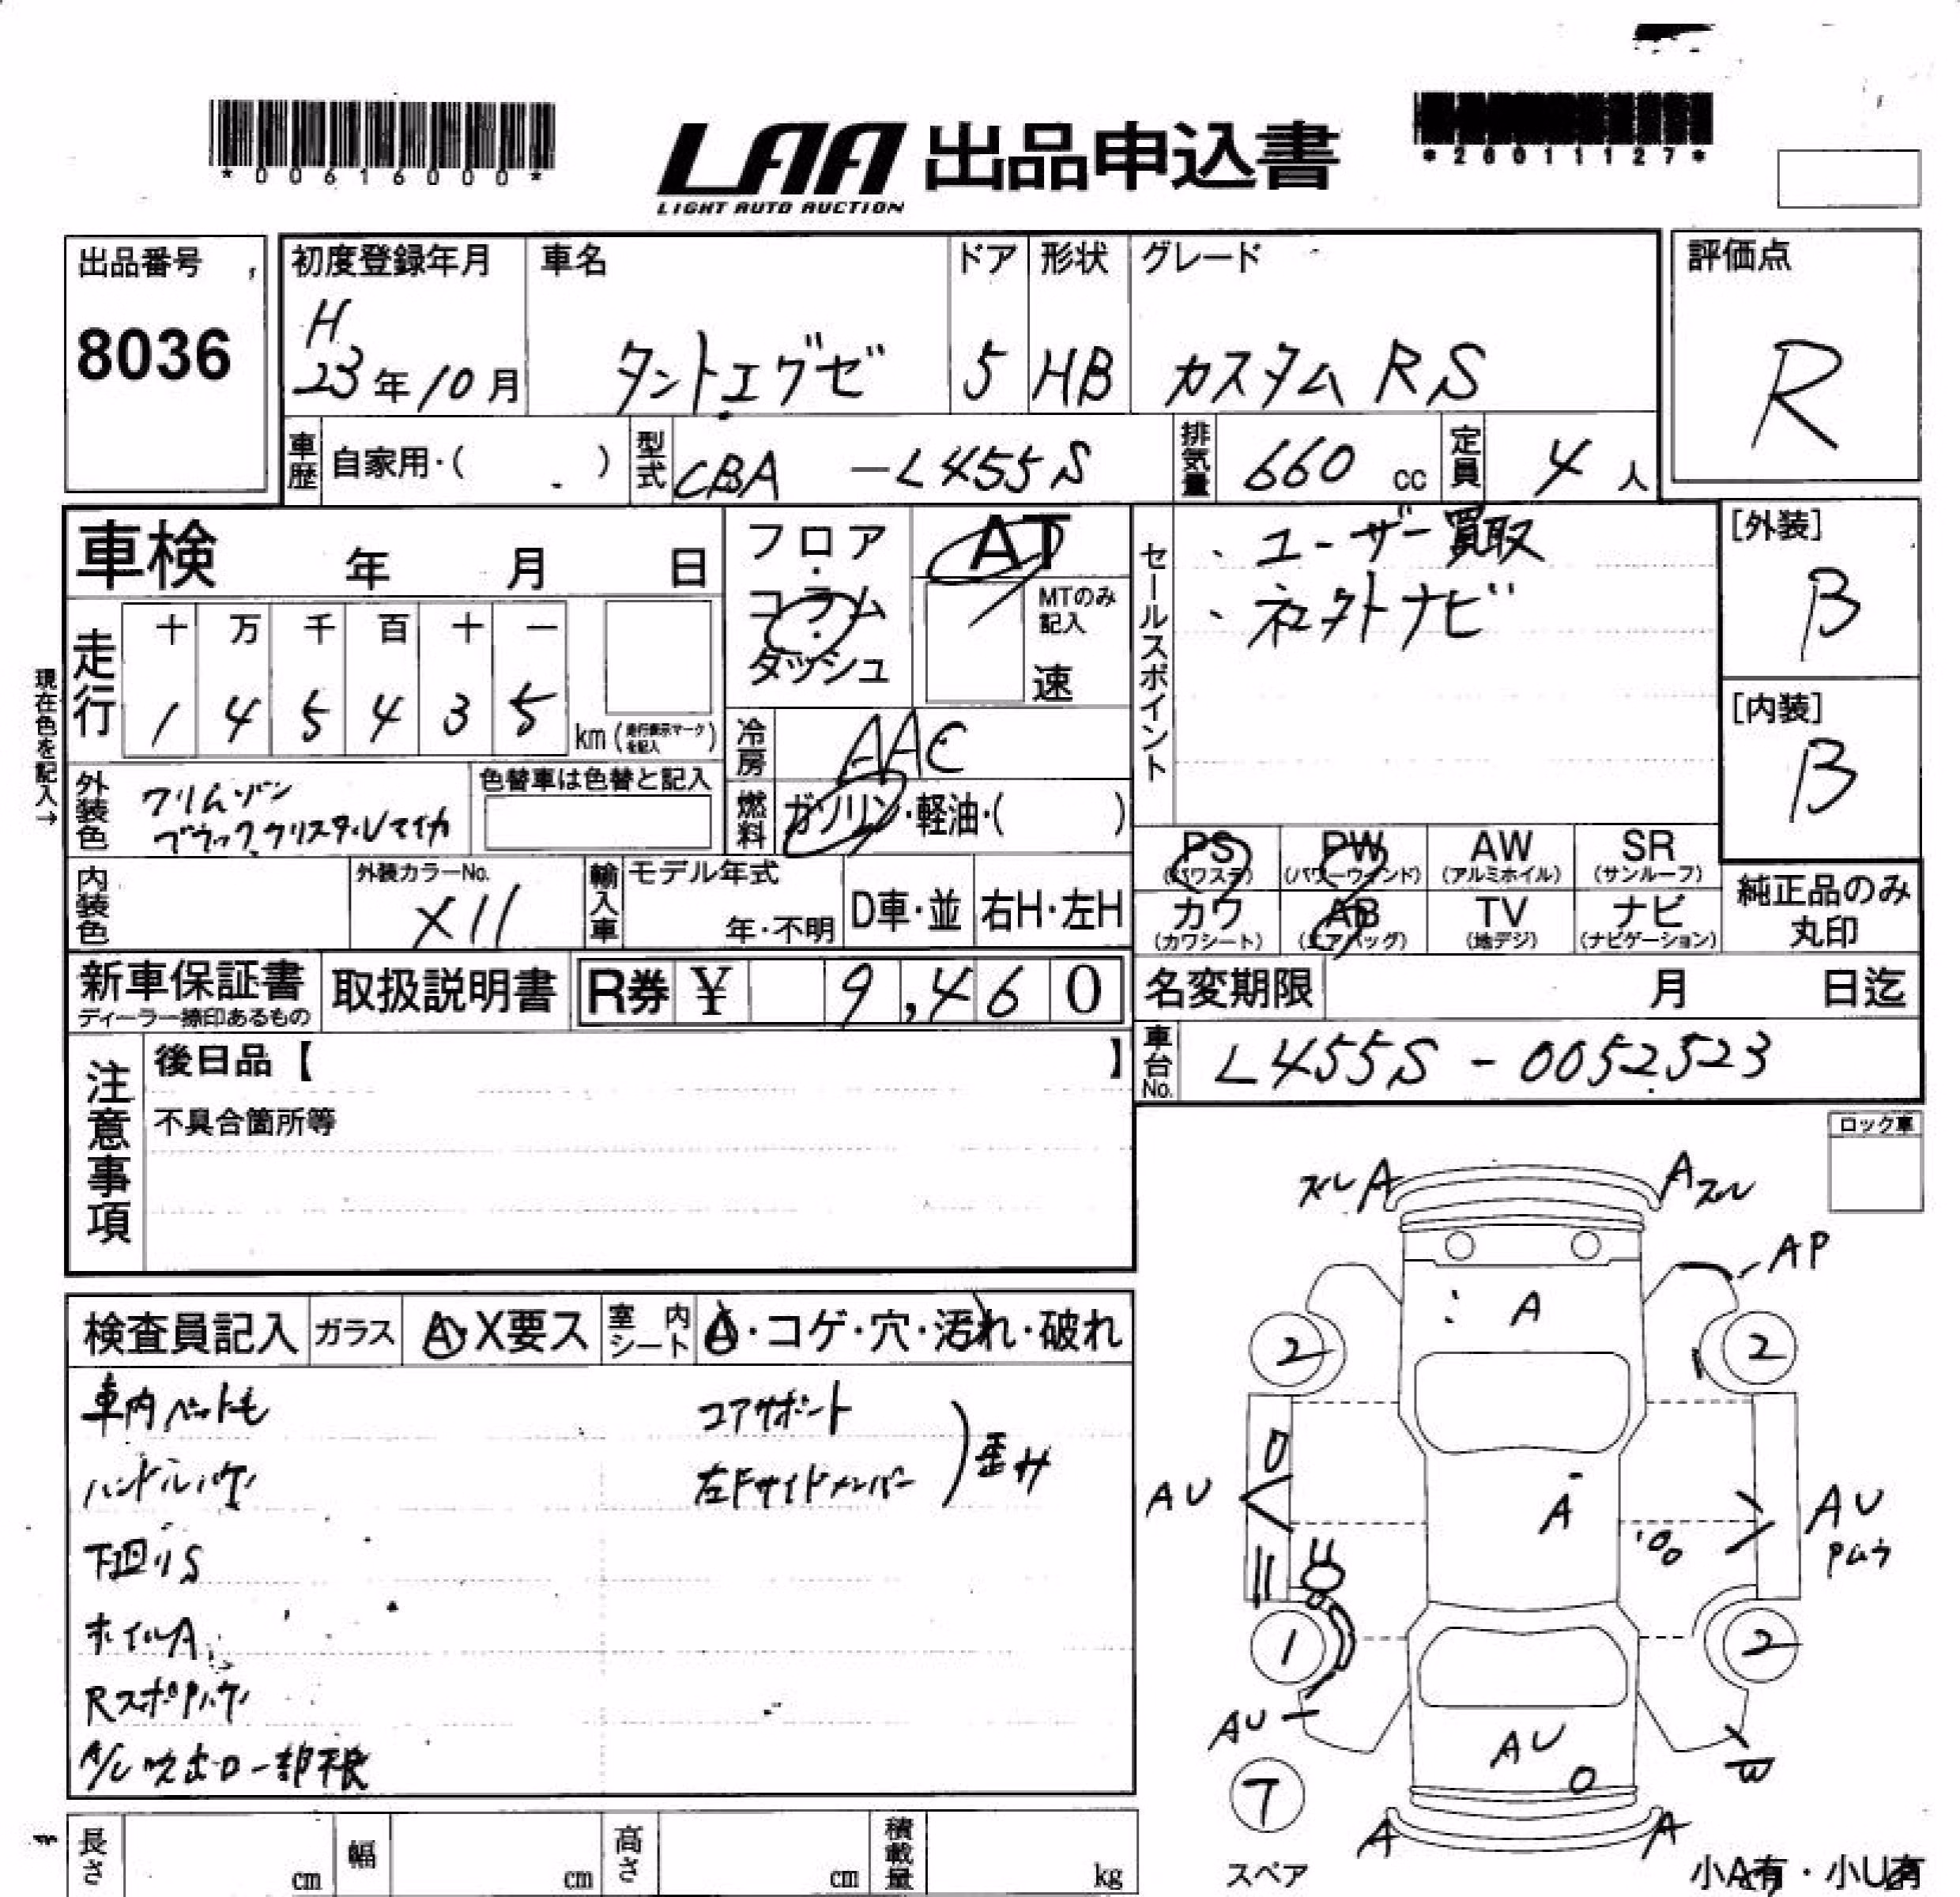 *00616000*
LAA 出品申込書
LIGHT AUTO AUCTION
*26011127*
出品番号
8036
初度登録年月
H
23年10月
車名
タントエグゼ
ドア
5
形状
HB
グレード
カスタム RS
評価点
R
車歴
自家用・( )
型式
CBA -L455S
排気量
660 cc
定員
4 人
車検 年 月 日
フロア・コラム・ダッシュ
AT
MTのみ記入
速
セールスポイント
・ユーザー買取
・社外ナビ
[外装]
B
[内装]
B
現在色を記入→
走行
十 万 千 百 十 一
1 4 5 4 3 5
km(走行表示マークを記入)
冷房
AAC
燃料
ガソリン・軽油・( )
外装色
クリムゾン
ブラッククリスタルマイカ
色替車は色替と記入
PS
(パワステ)
PW
(パワーウィンド)
AW
(アルミホイル)
SR
(サンルーフ)
内装色
外装カラーNo.
X11
輸入車
モデル年式
年・不明
D車・並
右H・左H
カワ
(カワシート)
AB
(エアバッグ)
TV
(地デジ)
ナビ
(ナビゲーション)
純正品のみ
丸印
新車保証書
ディーラー捺印あるもの
取扱説明書
R券 ¥ 9,460
名変期限 月 日迄
車台No.
L455S - 0052523
注意事項
後日品【 】
不具合箇所等
ロック車
検査員記入
ガラス
A・X要ス
室内シート
A・コゲ・穴・汚れ・破れ
車内ペット毛
ハンドルハゲ
下廻りS
ホイルA
RスポPハゲ
A/C吹出口一部不良
コアサポート
左Fサイドメンバー
歪み
ズレA
Aズレ
AP
A
2
2
AU
A
AU
Pムラ
1
2
AU
AU
W
T
スペア
A
A
小A有・小U有
長さ cm
幅 cm
高さ cm
積載量 kg